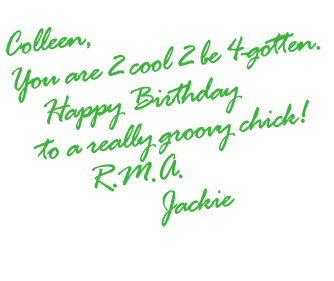 Colleen,
You are 2 cool 2 be 4-gotten.
Happy Birthday
to a really groovy chick!
R.M.A.
Jackie